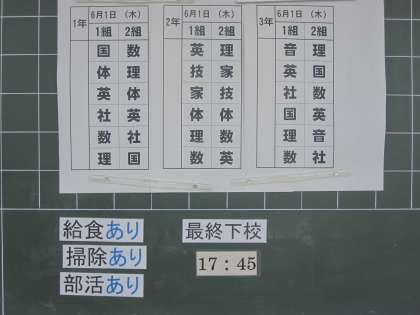 1年 6月1日 (木)
1組 2組
国 数
体 理
英 体
社 英
数 社
理 国
2年 6月1日 (木)
1組 2組
英 理
技 家
家 技
体 体
理 数
数 英
3年 6月1日 (木)
1組 2組
音 理
英 国
社 数
国 英
理 音
数 社
給食あり
掃除あり
部活あり
最終下校
17:45